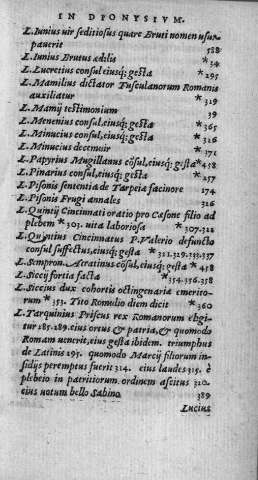 IN DIONYSIVM.
L. Iunius uir seditiosus quare Bruti nomen usur-
pauerit 588
L. Iunius Brutus ædilis *34
L. Lucretius consul, eiusq; gesta *295
L. Mamilius dictator Tusculanorum Romanis
auxiliatur *319
L. Mamij testimonium 39
L. Menenius consul, eiusq; gesta *365
L. Minucius consul, eiusq; gesta *316
L. Minucius decemuir *371
L. Papyrius Mugillanus cōsul, eiusq; gesta *458
L. Pinarius consul, eiusq; gesta *257
L. Pisonis sententia de Tarpeia facinore 174
L. Pisonis Frugi annales 326
L. Quintij Cincinnati oratio pro Cæsone filio ad
plebem *303. uita laboriosa *307.322
L. Quintius Cincinnatus P. Valerio defuncto
consul suffectus, eiusq; gesta *322.329.333.337
L. Sempron. Atratinus cōsul, eiusq; gesta *458
L. Siccij fortia facta *354.356.358
L. Siccius dux cohortis octingenariæ emerito-
rum *353. Tito Romulio diem dicit *360
L. Tarquinius Priscus rex Romanorum eligi
tur 285.289. eius ortus & patria, & quomodo
Romam uenerit, eius gesta ibidem. triumphus
de Latinis 295. quomodo Marcij filiorum in-
sidijs peremptus fuerit 314. eius laudes 315. è
plebeio in patritiorum ordinem ascitus 320.
eius uotum bello Sabino 389
Lucius